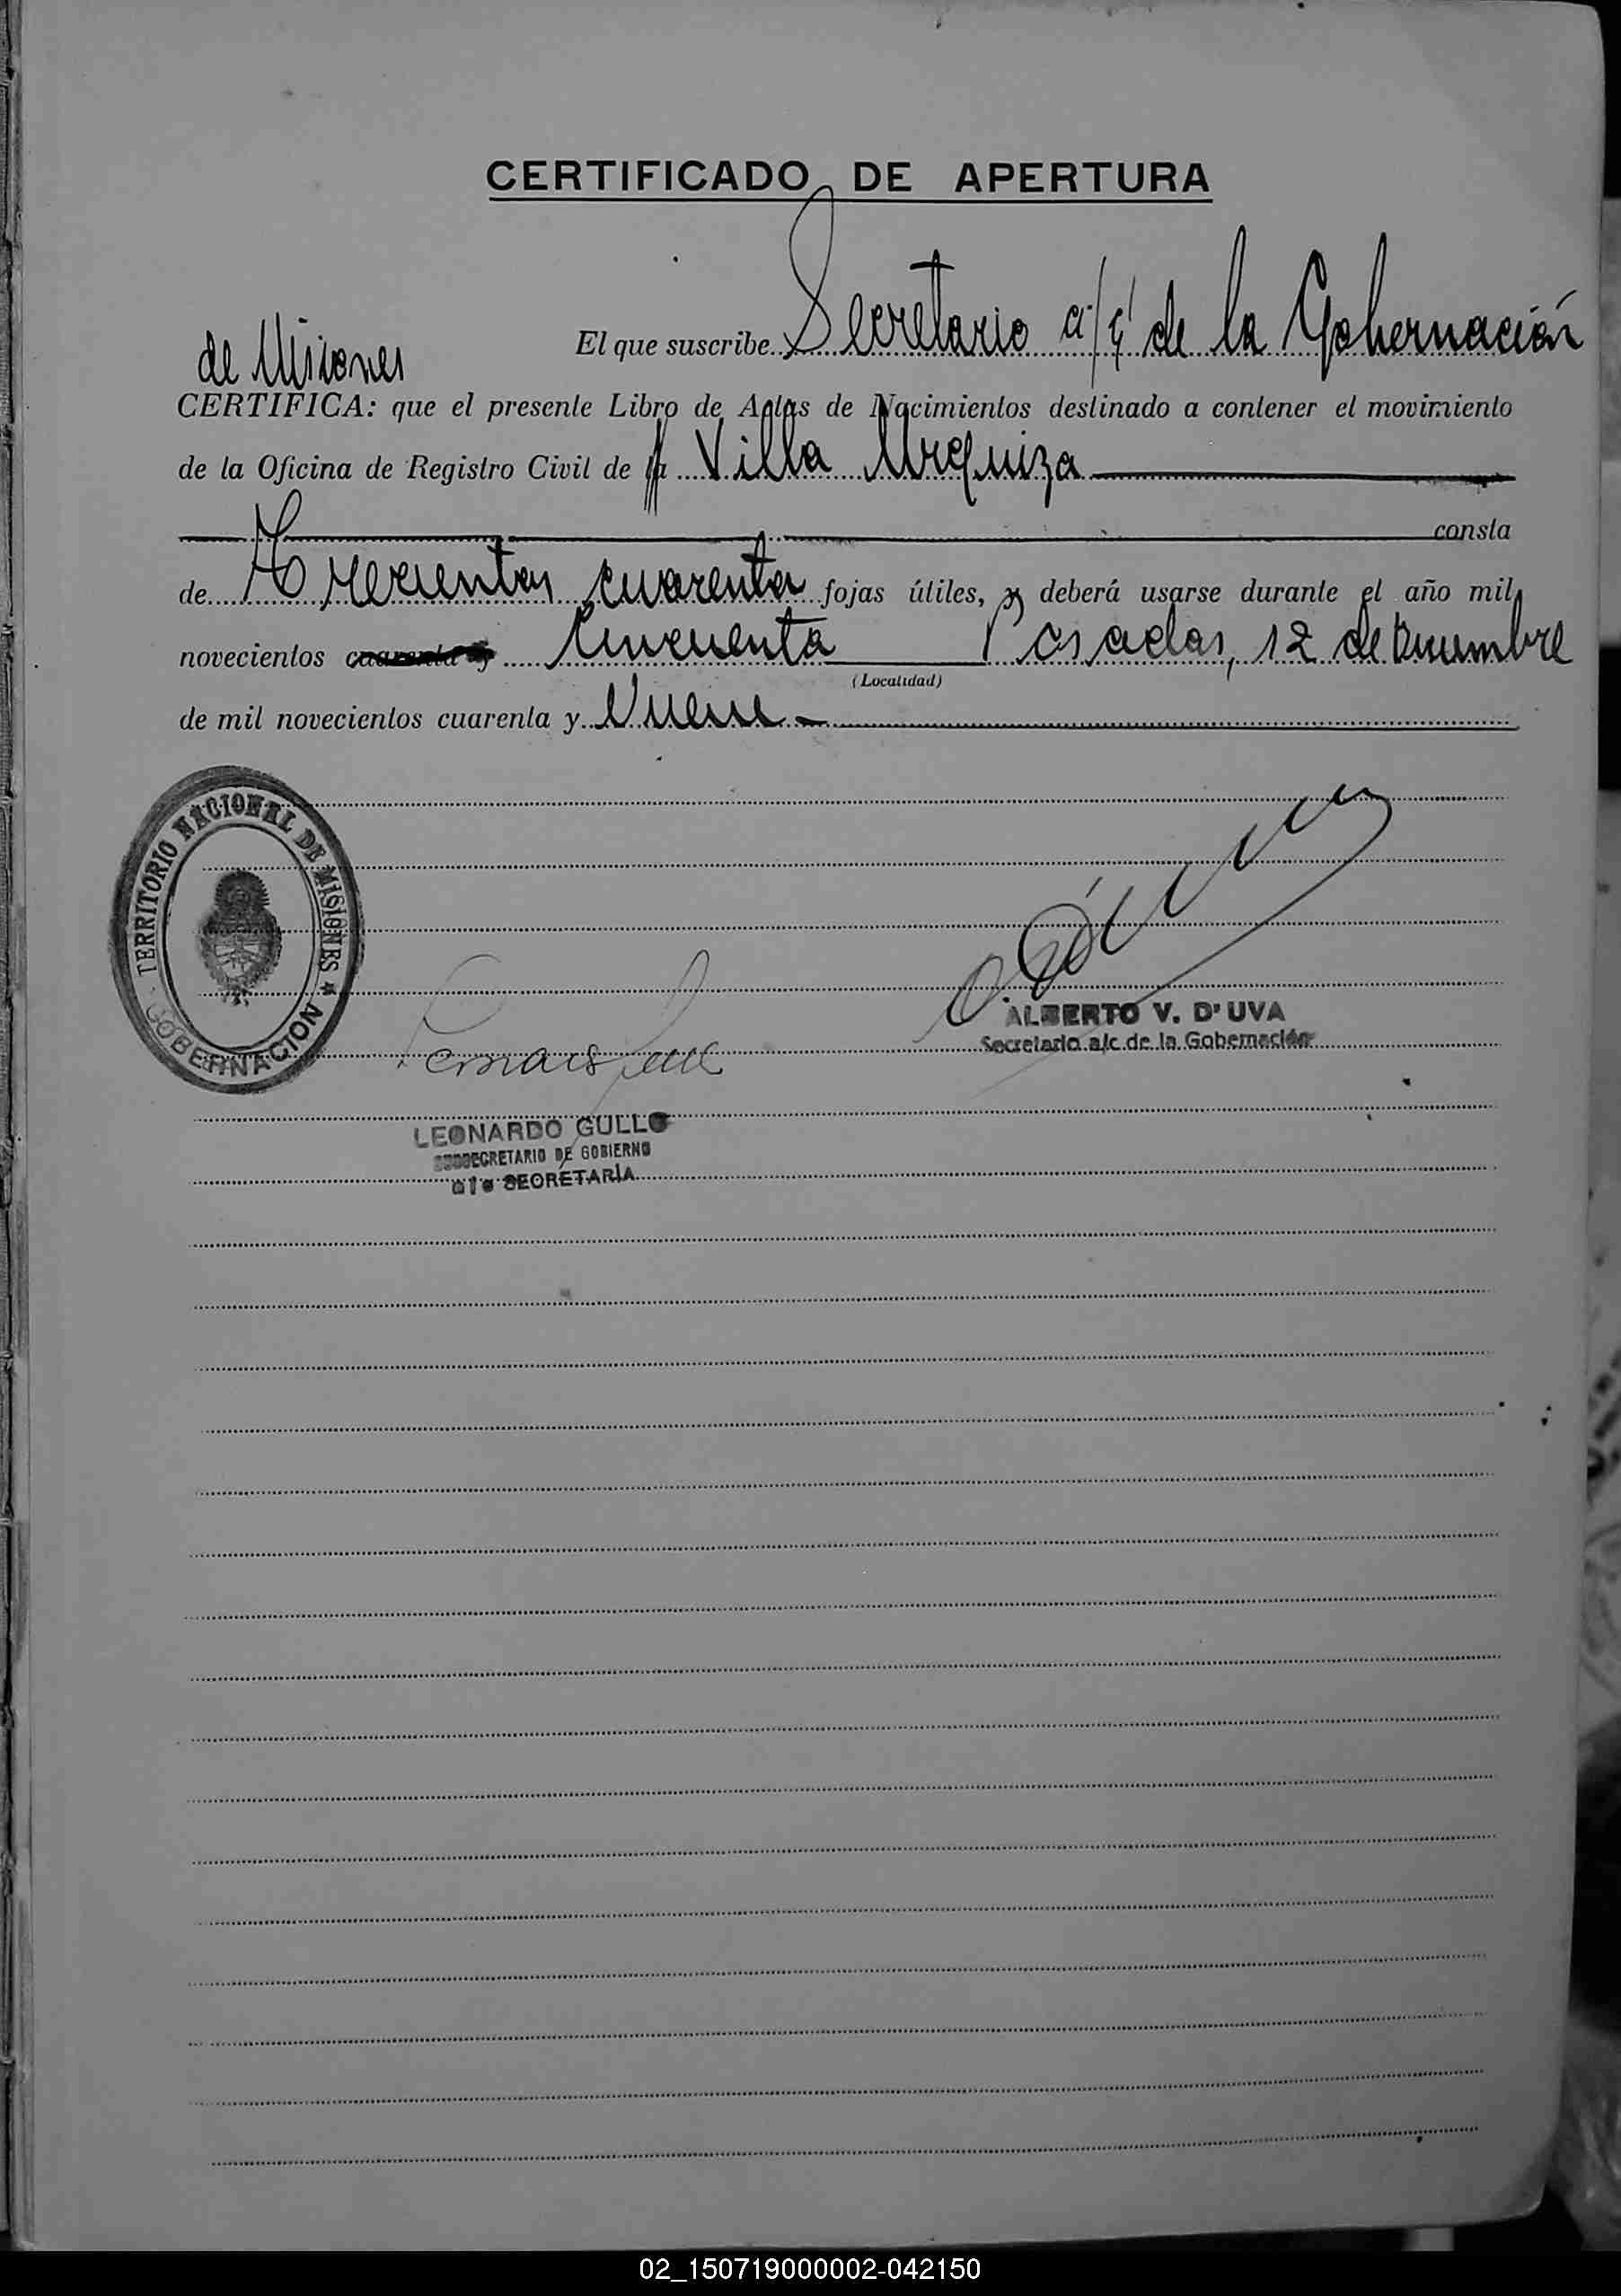 CERTIFICADO DE APERTURA
El que suscribe Secretario a/c de la Gobernación
de Misiones
CERTIFICA: que el presente Libro de Actas de Nacimientos destinado a contener el movimiento
de la Oficina de Registro Civil de la Villa Urquiza
consta
de Trescientas cuarenta fojas útiles, y deberá usarse durante el año mil
novecientos cuarenta y Cincuenta Posadas, 12 de Diciembre
(Localidad)
de mil novecientos cuarenta y Nueve
TERRITORIO NACIONAL DE MISIONES
GOBERNACION
ALBERTO V. D'UVA
Secretario a/c de la Gobernación
LEONARDO GULLO
SUBSECRETARIO DE GOBIERNO
a/c SECRETARIA
02_150719000002-042150